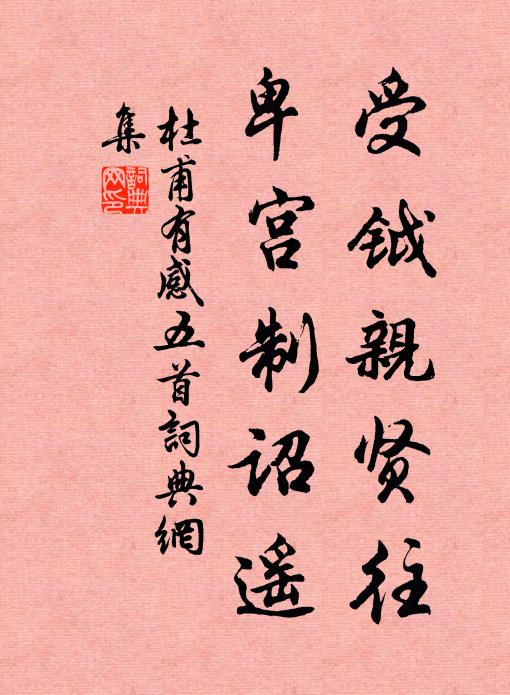 受钺親贤往
卑宫制诏遥
杜甫有感五首詞典網
集
詞典
网印